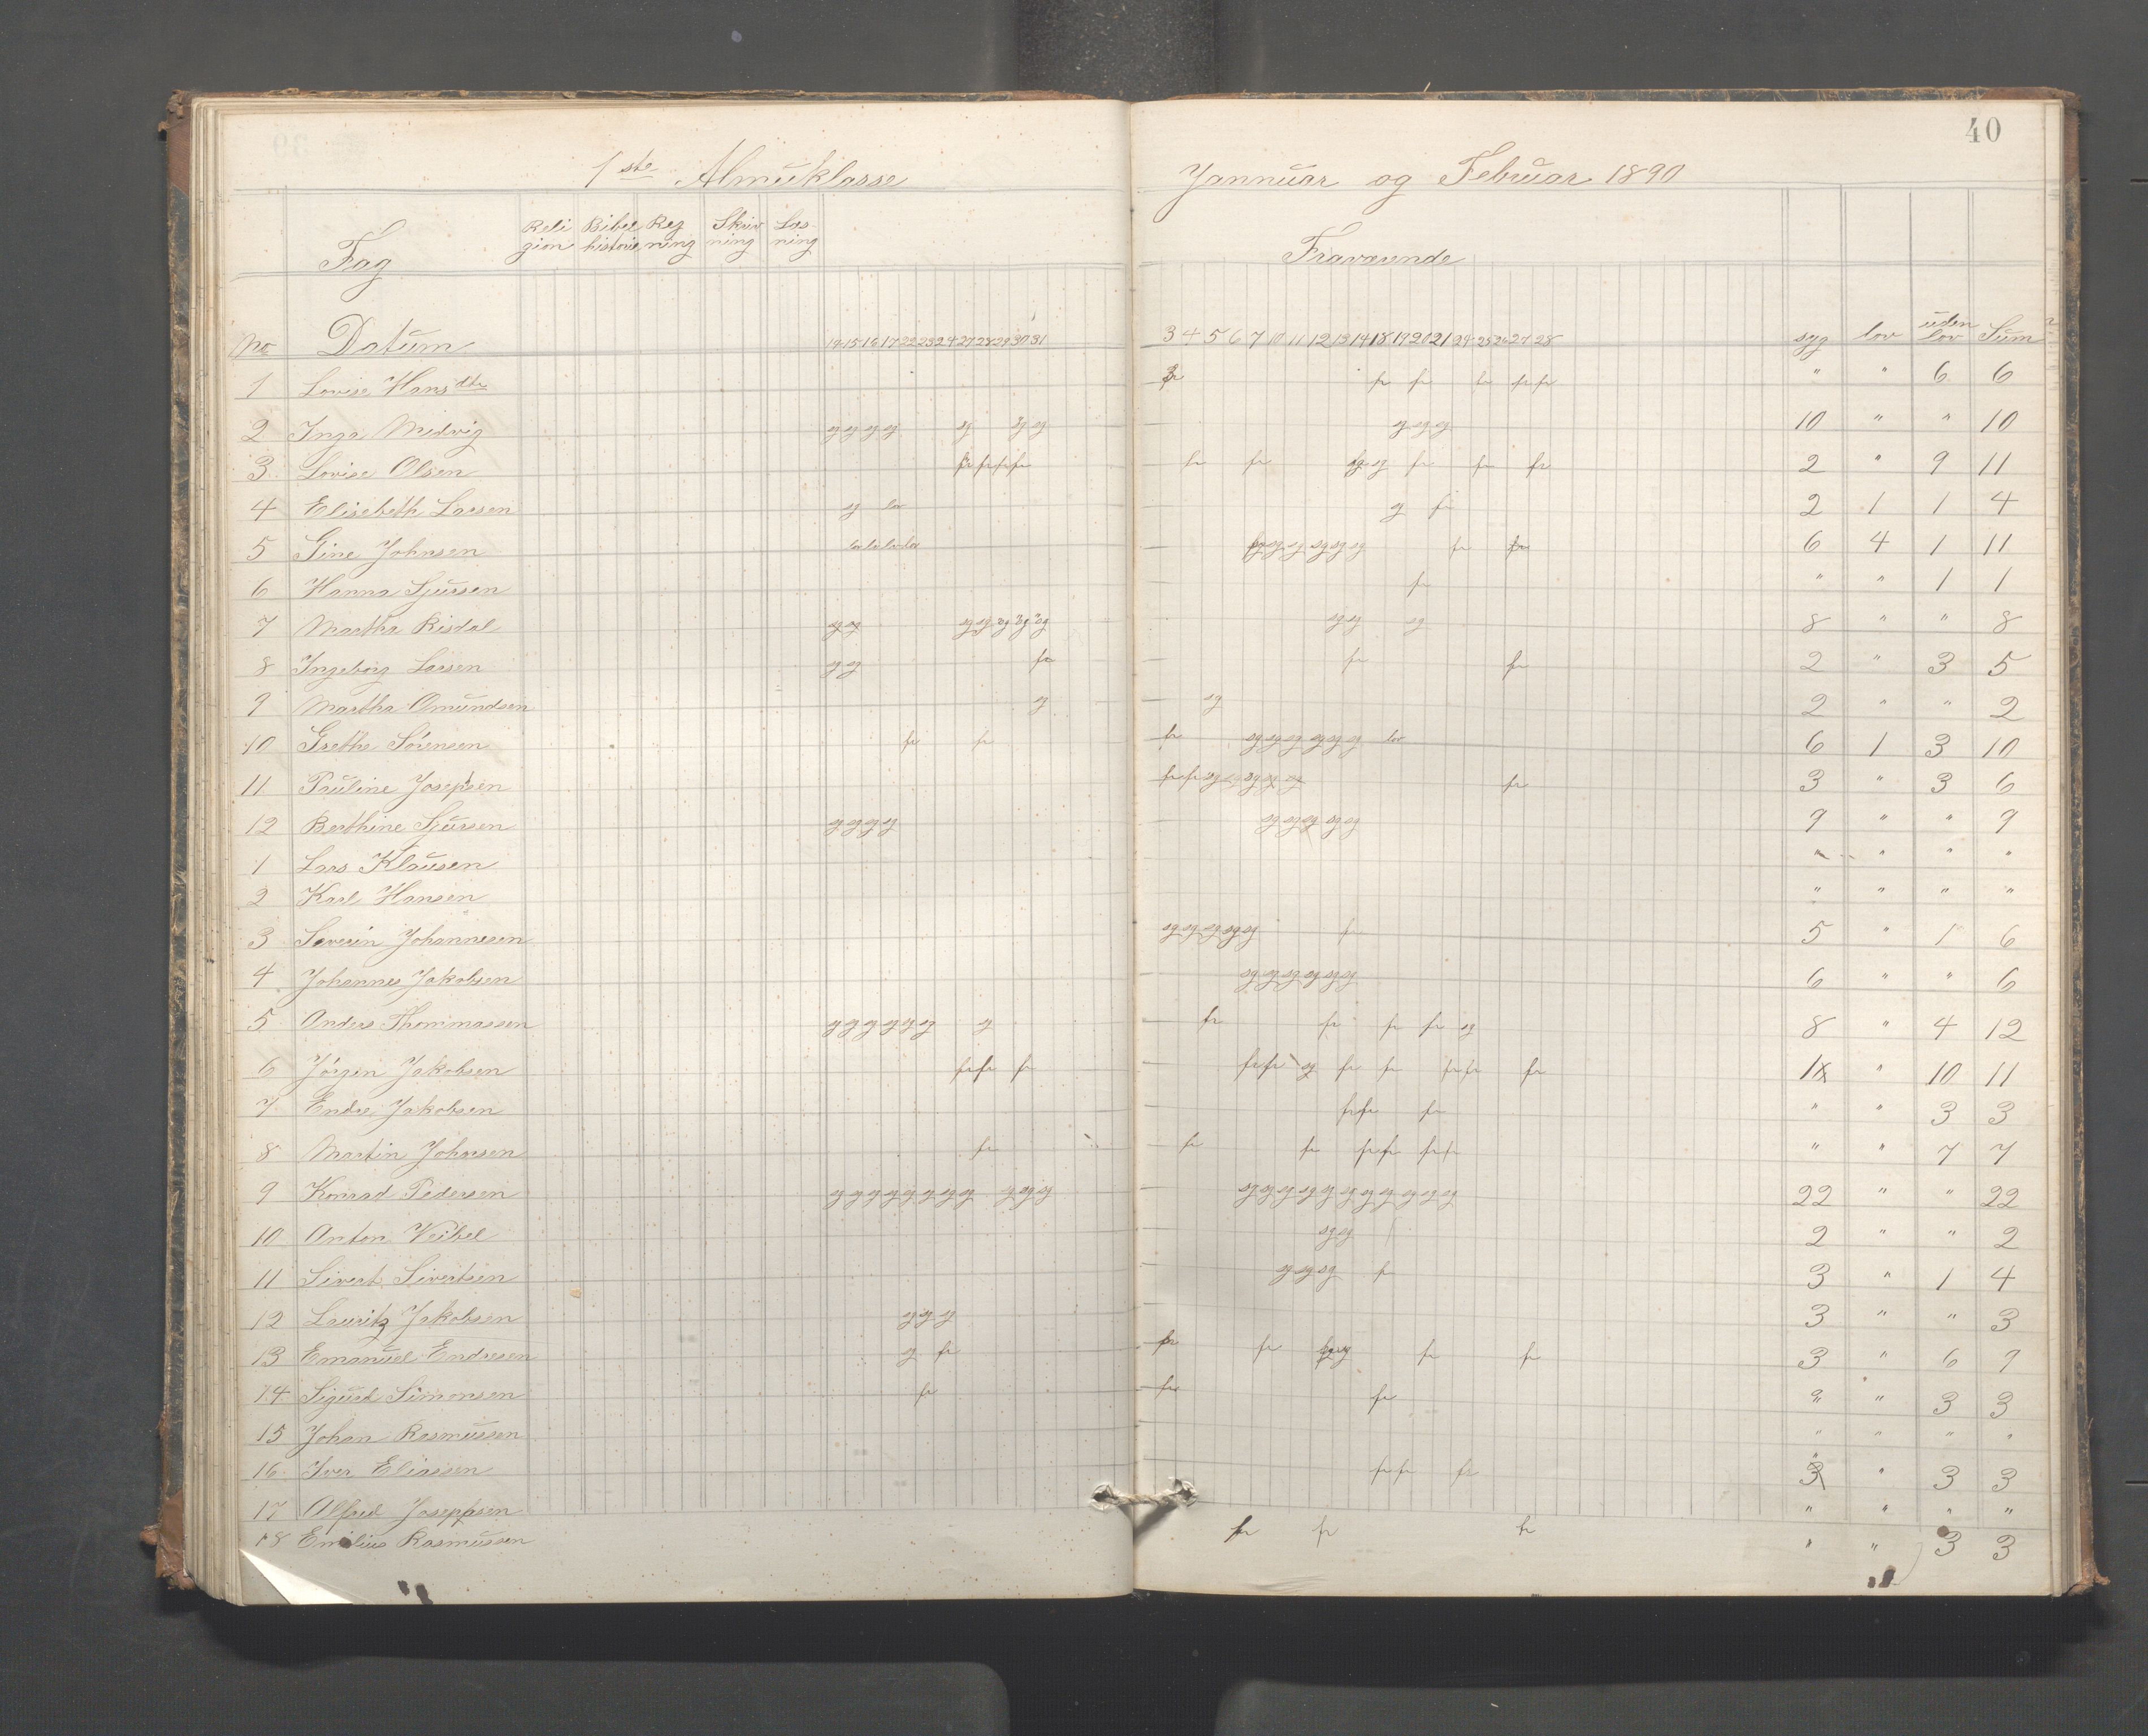 40
1ste Almuklasse
Jannuar og Februar 1890
Fag Reli gion Bibel historie Reg ning Skriv ning Læs ning
Fraværende
No Datum 14 15 16 17 22 23 24 27 28 29 30 31 3 4 5 6 7 10 11 12 13 14 18 19 20 21 24 25 26 27 28 syg lov uden lov Sum
1 Lovise Hansdtr fr fr fr fr fr " " 6 6
2 Inga Midvig sg sg sg sg sg sg sg sg sg sg 10 " " 10
3 Lovise Olsen fr fr fr fr fr fr sg sg fr fr fr 2 " 9 11
4 Elisebeth Larsen sg lov sg fr 2 1 1 4
5 Gine Johnsen lov lov lov lov sg sg sg sg sg sg fr 6 4 1 11
6 Hanna Sjursen fr " " 1 1
7 Martha Risdal sg sg sg sg sg sg sg sg 8 " " 8
8 Ingeborg Larsen sg sg fr fr fr 2 " 3 5
9 Martha Omundsen sg sg 2 " " 2
10 Grethe Sørensen fr fr fr sg sg sg sg sg sg lov 6 1 3 10
11 Pauline Josepsen fr fr sg sg sg fr 3 " 3 6
12 Berthine Sjursen sg sg sg sg sg sg sg sg sg 9 " " 9
1 Lars Klausen " " " "
2 Karl Hansen " " " "
3 Severin Johannesen sg sg sg sg sg fr 5 " 1 6
4 Johannes Jakobsen sg sg sg sg sg sg 6 " " 6
5 Anders Thommassen sg sg sg sg sg sg sg fr fr fr fr sg 8 " 4 12
6 Jörgen Jakobsen fr fr fr fr fr sg fr fr fr fr fr 1 " 10 11
7 Endre Jakobsen fr fr fr " " 3 3
8 Martin Johnsen fr fr fr fr fr fr fr " " 7 7
9 Konrad Pedersen sg sg sg sg sg sg sg sg sg sg sg sg sg sg sg sg sg sg sg sg sg sg 22 " " 22
10 Anton Veibel sg sg 2 " " 2
11 Sivert Sivertsen sg sg sg fr 3 " 1 4
12 Lauritz Jakobsen sg sg sg 3 " " 3
13 Emanuel Endresen sg fr fr fr sg fr fr 3 " 6 9
14 Sigurd Simonsen fr fr fr " " 3 3
15 Johan Rasmussen " " " "
16 Iver Eliassen fr fr fr " " 3 3
17 Alfred Josephsen " " " "
18 Emilius Rasmussen fr fr fr " " 3 3